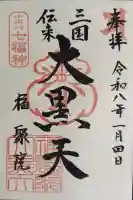 奉拝
令和八年一月四日
三国
伝来
大黒天
七福神
福聚院